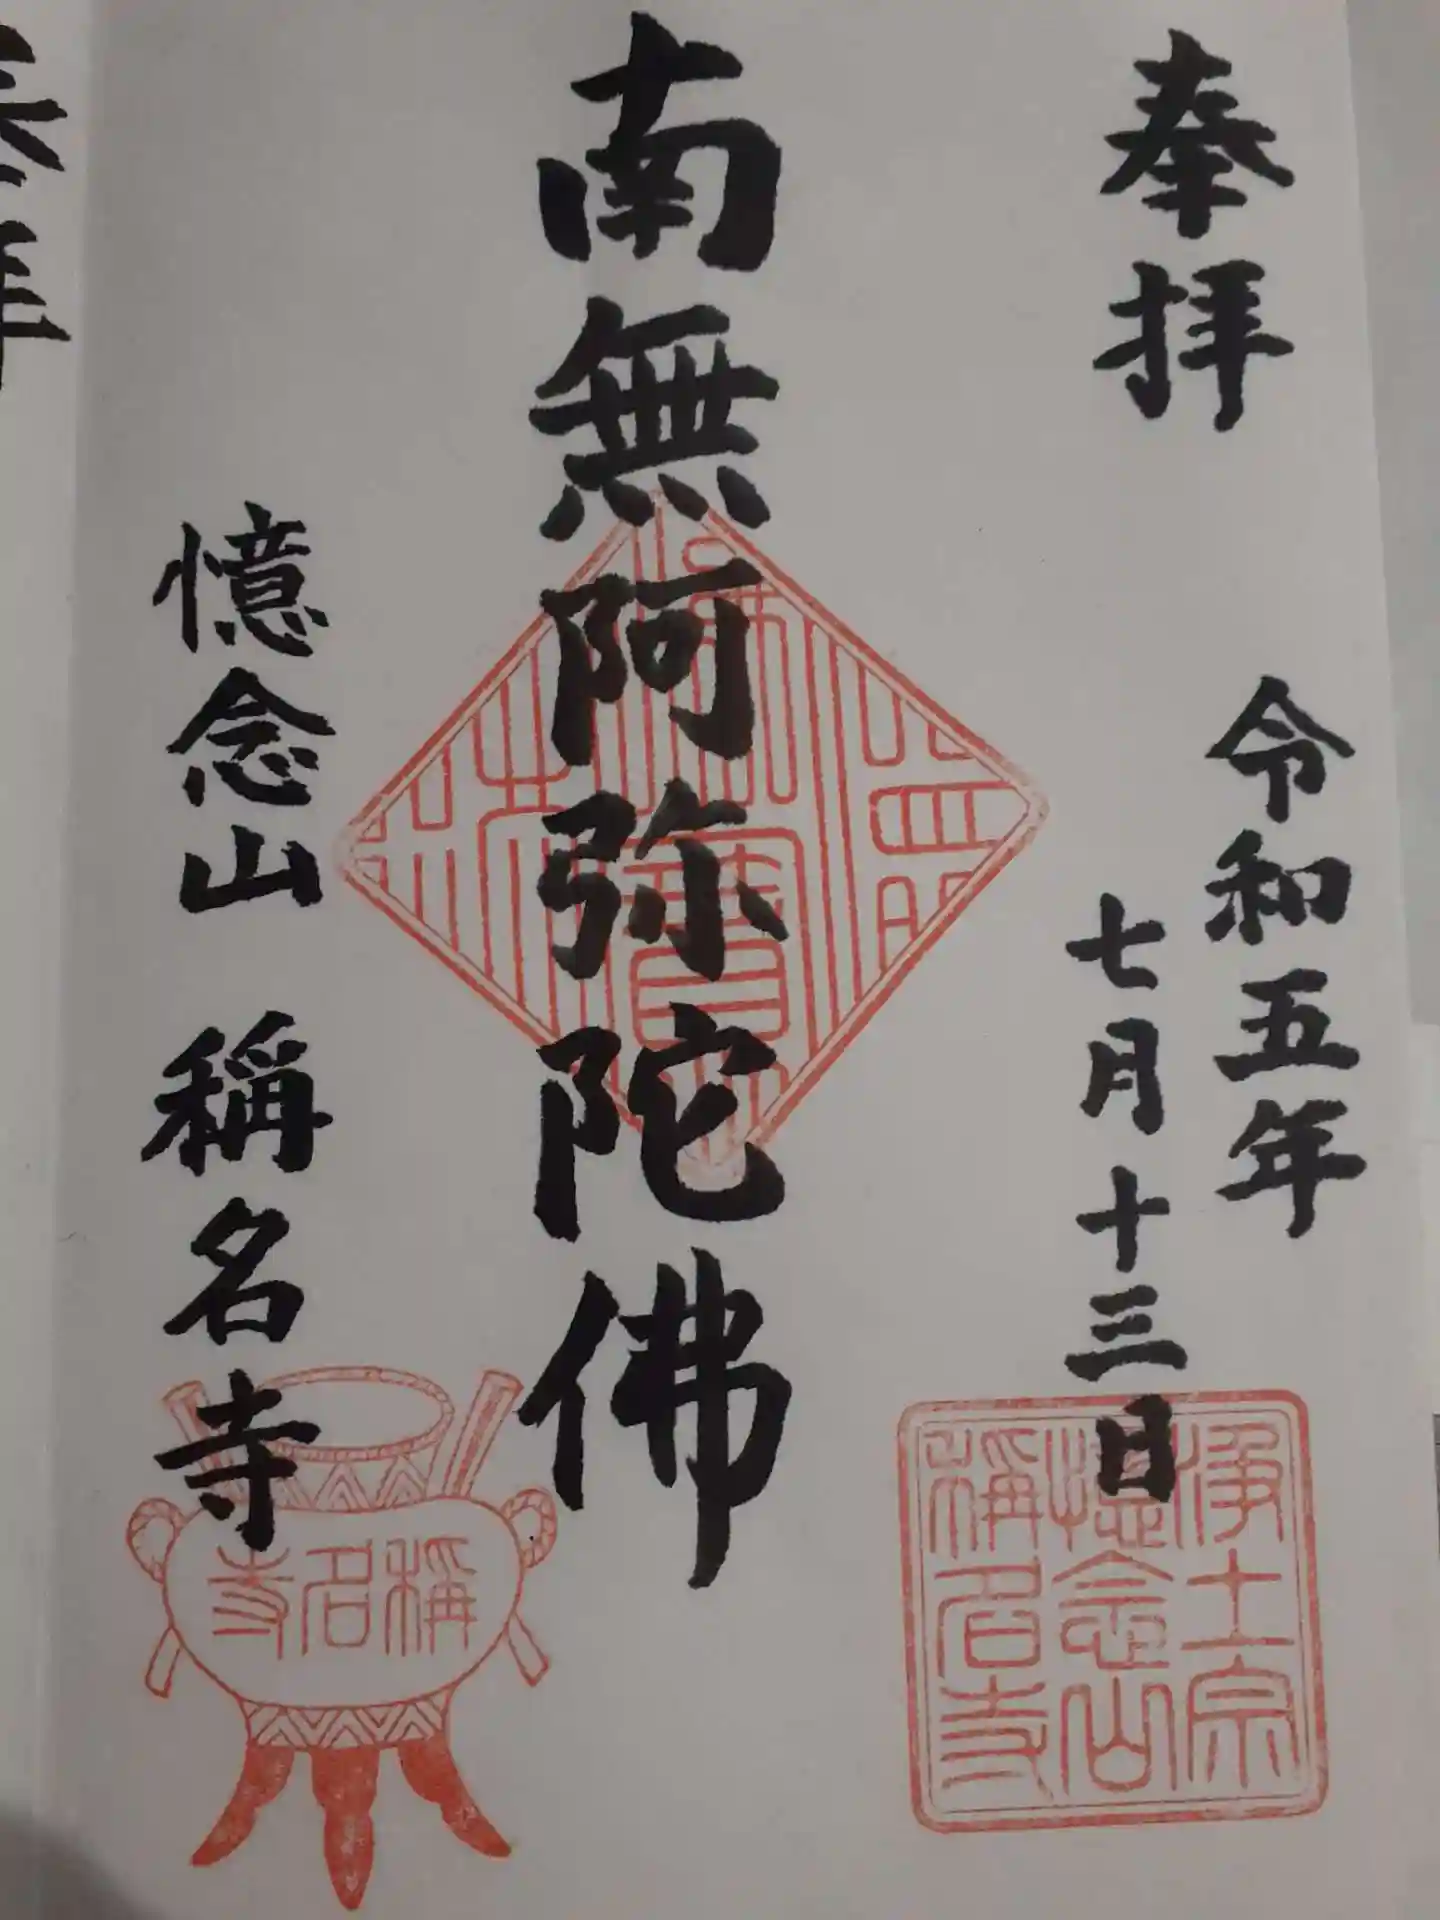 奉拝
令和五年
七月十三日
南無阿弥陀佛
憶念山 稱名寺
浄土宗
憶念山
稱名寺
稱名寺
奉拝